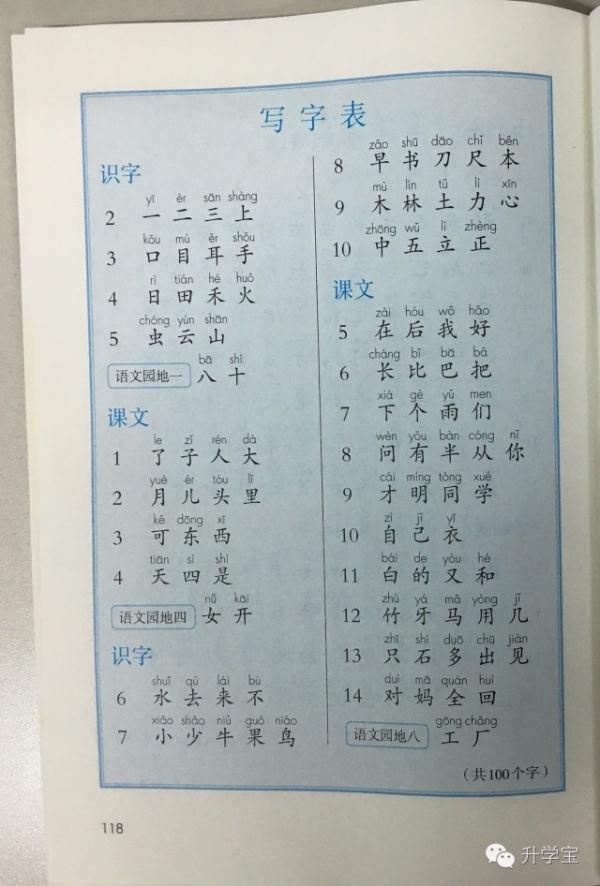 写字表
识字
yī èr sān shàng
2 一 二 三 上
kǒu mù ěr shǒu
3 口 目 耳 手
rì tián hé huǒ
4 日 田 禾 火
chóng yún shān
5 虫 云 山
bā shí
语文园地一 八 十
课文
le zǐ rén dà
1 了 子 人 大
yuè ér tóu lǐ
2 月 儿 头 里
kě dōng xī
3 可 东 西
tiān sì shì
4 天 四 是
nǚ kāi
语文园地四 女 开
识字
shuǐ qù lái bù
6 水 去 来 不
xiǎo shǎo niú guǒ niǎo
7 小 少 牛 果 鸟
zǎo shū dāo chǐ běn
8 早 书 刀 尺 本
mù lín tǔ lì xīn
9 木 林 土 力 心
zhōng wǔ lì zhèng
10 中 五 立 正
课文
zài hòu wǒ hǎo
5 在 后 我 好
cháng bǐ bā bǎ
6 长 比 巴 把
xià gè yǔ men
7 下 个 雨 们
wèn yǒu bàn cóng nǐ
8 问 有 半 从 你
cái míng tóng xué
9 才 明 同 学
zì jǐ yī
10 自 己 衣
bái de yòu hé
11 白 的 又 和
zhú yá mǎ yòng jǐ
12 竹 牙 马 用 几
zhǐ shí duō chū jiàn
13 只 石 多 出 见
duì mā quán huí
14 对 妈 全 回
gōng chǎng
语文园地八 工 厂
（共100个字）
118
升学宝